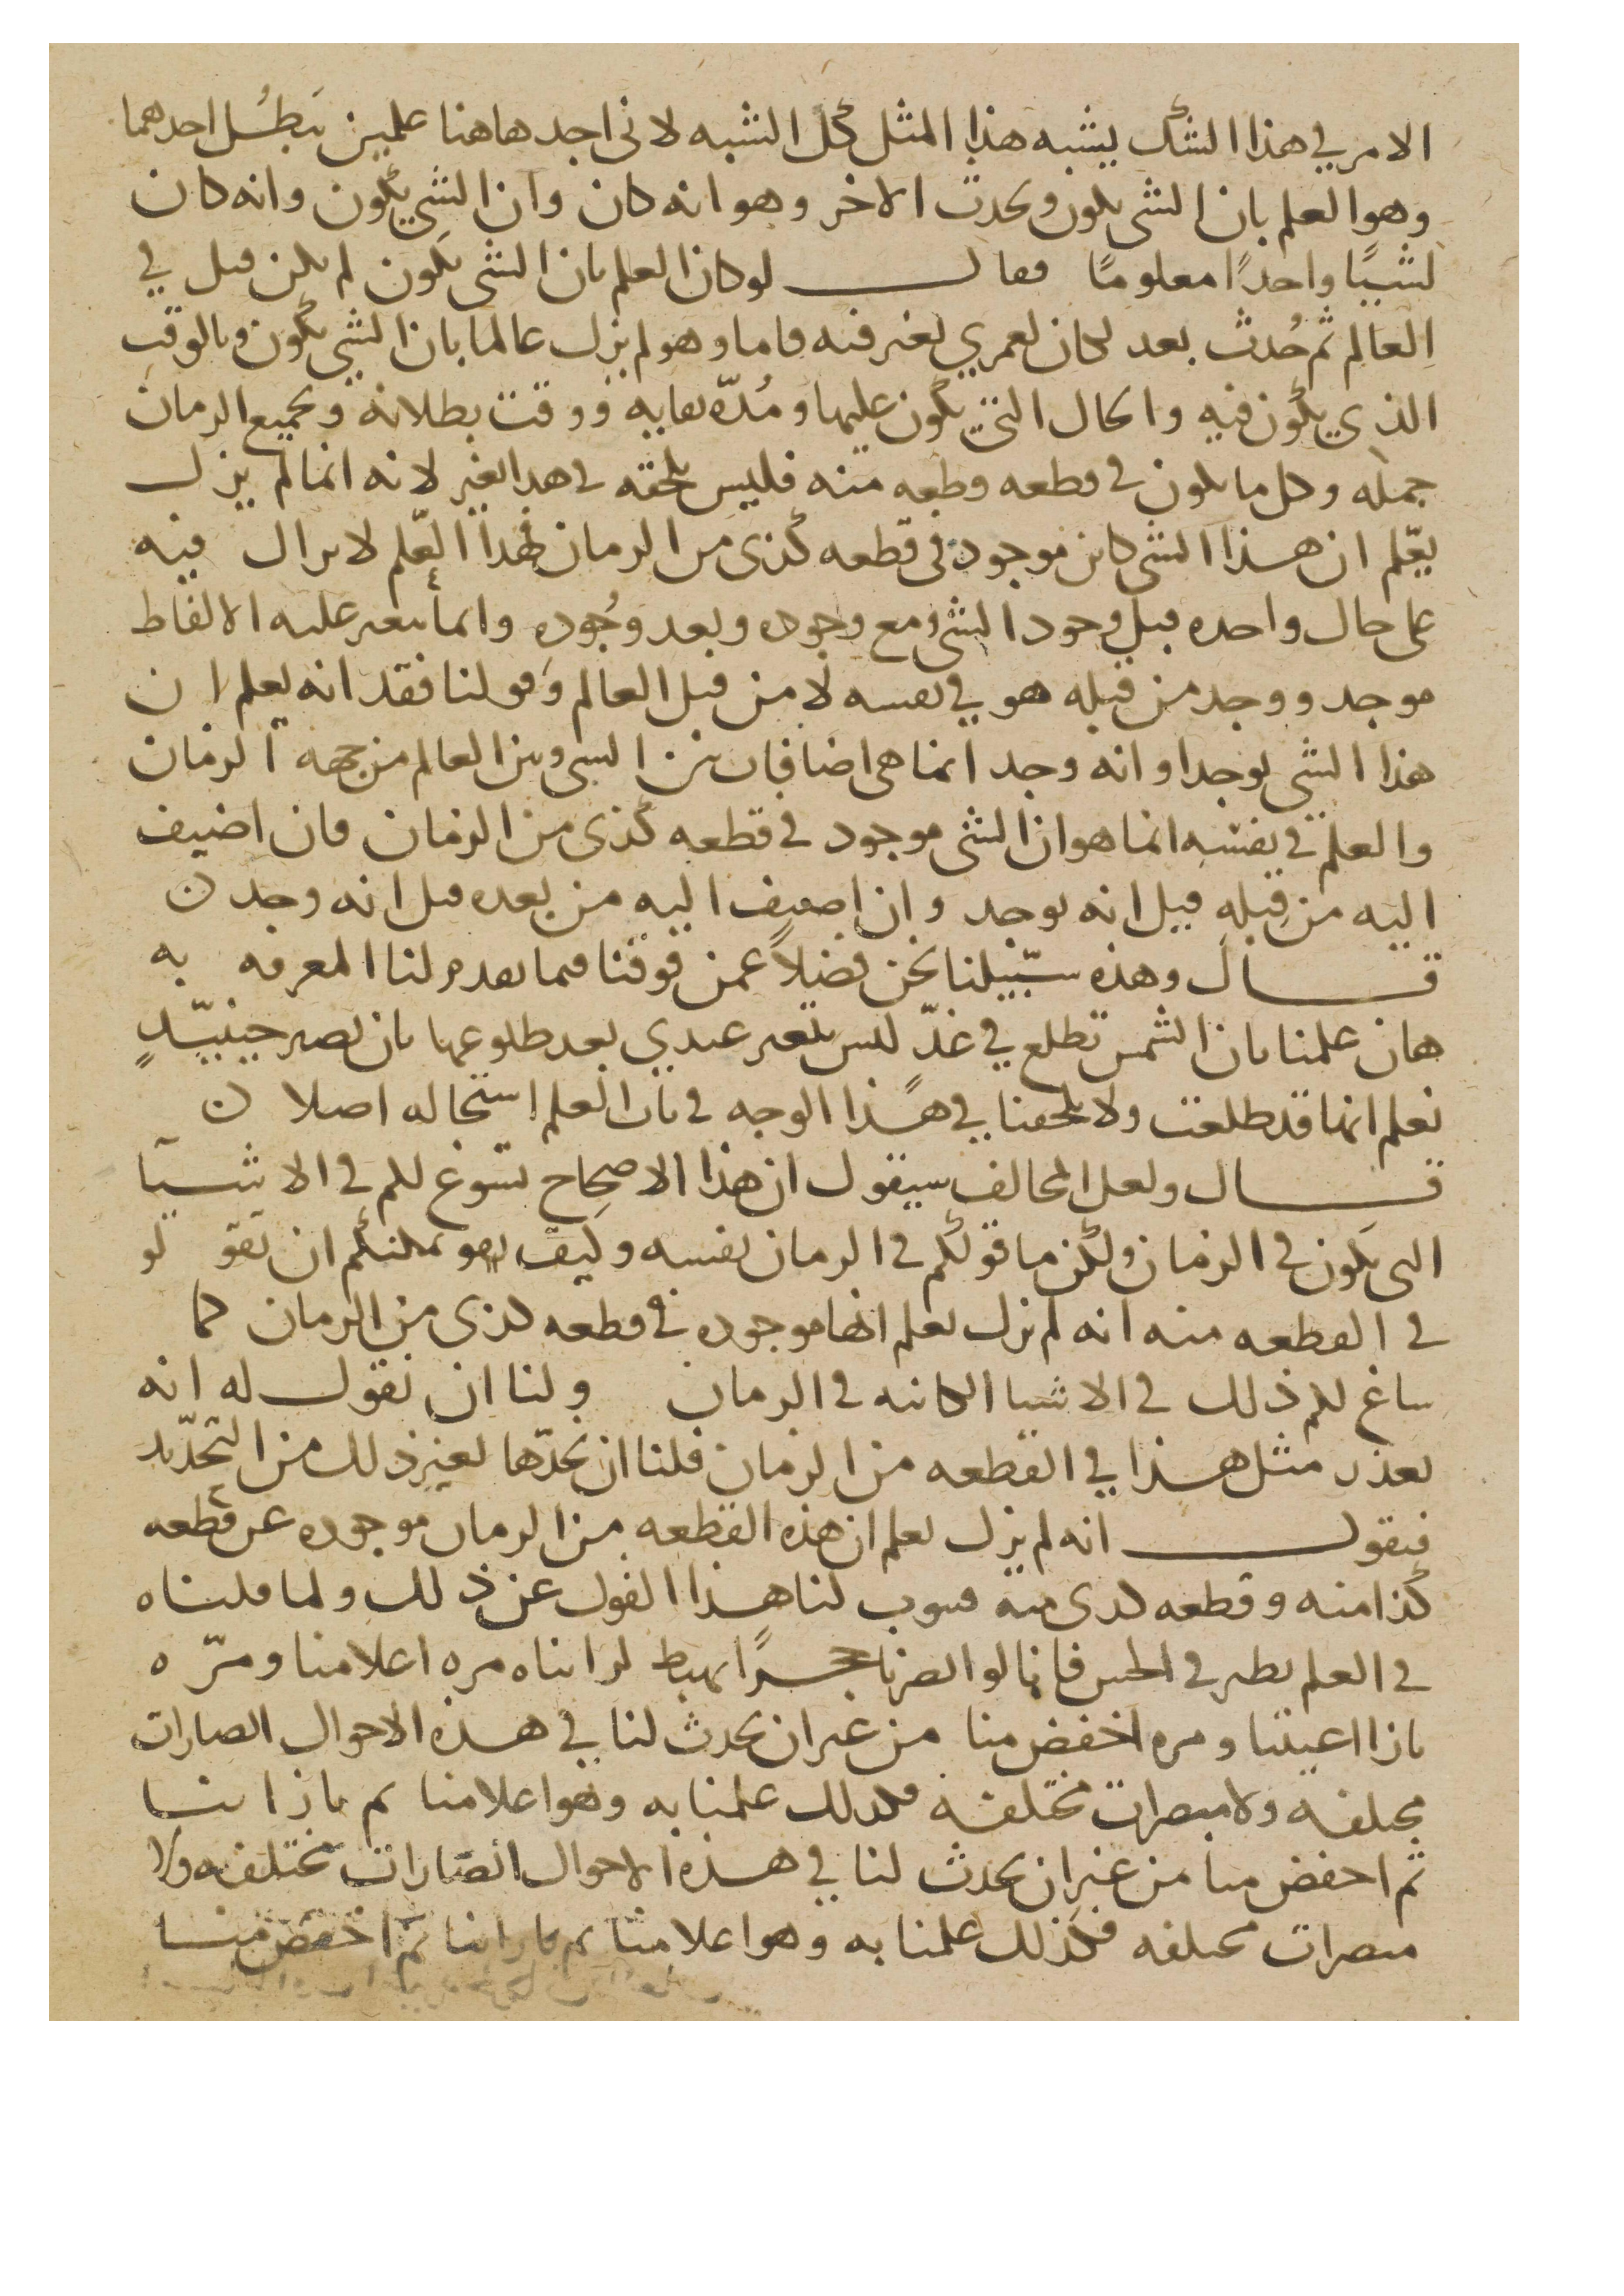 الامر في هذا الشك يشبه هذا المثل كل الشبه لاني اجد هاهنا علمين يبطُل احدهما
وهو العلم بان الشي يكون ويحدث الاخر وهو انه كان وان الشي يكون وانه كان
لشيئا واحدًا معلومًا فقال لو كان العلم بان الشي يكون لم يكن قبل في
العالم ثم حُدث بعد لكان لعمري تغير فيه فاما وهو لم يزل عالما بان الشي يكون وبالوقت
الذي يكون فيه والحال التي يكون عليها ومُدّه بقايه ووقت بطلانه وبجميع الزمان
جمله وكل ما يكون في قطعه قطعه منه فليس يلحقه في هذا تغير لانه انما لم يزل
يعلم ان هذا الشي كاين موجود في قطعه كذى من الزمان فهذا العلم لا يزال فيه
على حال واحده قبل وجود الشي ومع وجوده وبعد وجُوده وانما يتغير عليه الالفاظ
موجد ووجد من قبله هو في نفسه لا من قبل العالم وقولنا فقد انه يعلم ان
هذا الشي يوجد او انه وجد انما هي اضافات بين الشي وبين العالم من جهه الزمان
والعلم في نفسه انما هو ان الشي موجود في قطعه كذى من الزمان فان اضيف
اليه من قبله قيل انه يوجد وان اضيف اليه من بعده قيل انه وجد ن
قال وهذه سبيلنا نحن فضلاً عمن فوقنا فيما تقدم لنا المعرفه به
فان علمنا بان الشمس تطلع في غدّ ليس يتغير عندي بعد طلوعها بان نصير حينيذٍ
نعلم انها قد طلعت ولا يلحقنا في هذا الوجه في باب العلم استحاله اصلا ن
قال ولعل المخالف سيقول ان هذا الاصحاح يسوغ لكم في الاشيا
التي يكون في الزمان ولكن ما قولكم في الزمان نفسه وكيف يمكنكم ان تقولو
في القطعه منه انه لم يزل يعلم انها موجوده في قطعه كذى من الزمان كما
ساغ لكم ذلك في الاشيا الكاينه في الزمان ولنا ان نقول له انه
تعذر مثل هذا في القطعه من الزمان فلنا ان نحدّها بغير ذلك من التحديد
فنقول انه لم يزل يعلم ان هذه القطعه من الزمان موجوده عن قطعه
كذا منه وقطعه كذى منه فينوب لنا هذا القول عن ذلك ولما قلناه
في العلم نظير في الحس فاننا لو ابصرنا حجرًا يهبط لرايناه مره اعلا منا ومرّه
بازا اعيننا ومره اخفض منا من غير ان يحدث لنا في هذه الاحوال ابصارات
مختلفه ولا مبصرات مختلفه فكذلك علمنا به وهو اعلا منا ثم بازاينا
ثم اخفض منا من غير ان يحدث لنا في هذه الاحوال ابصارات مختلفه ولا
مبصرات مختلفه فكذلك علمنا به وهو اعلا منا ثم بازاينا ثم اخفض منا